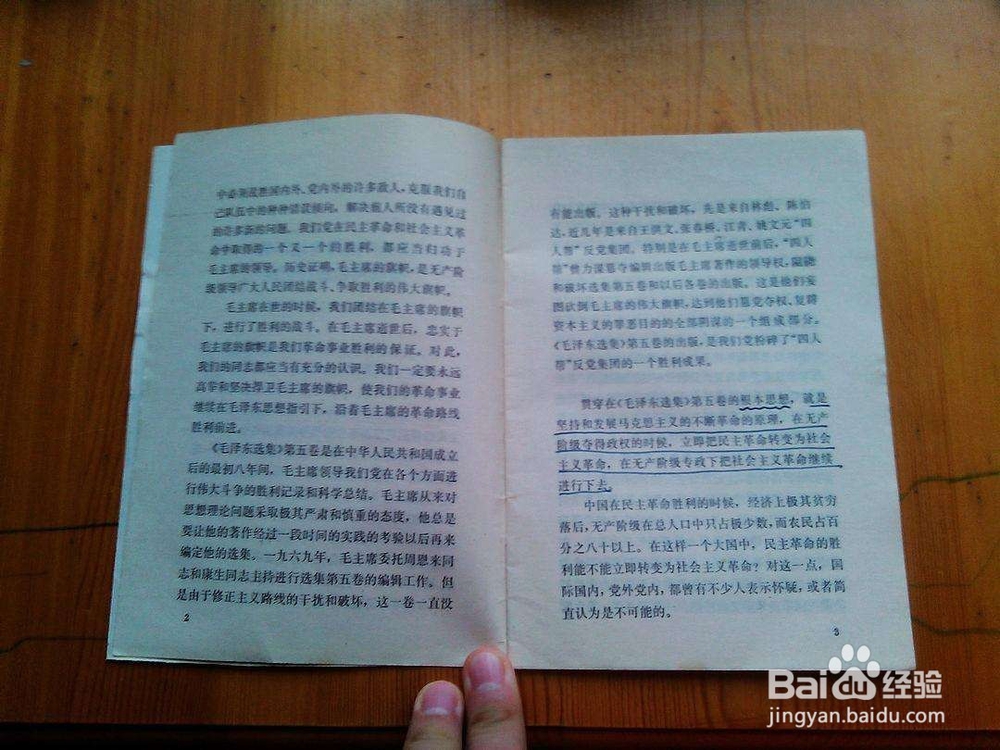 中必须战胜国内外、党内外的许多敌人，克服我们自
己队伍中的种种错误倾向，解决他人所没有遇见过
的许多新的问题。我们党在民主革命和社会主义革
命中取得的一个又一个的胜利，都应当归功于
毛主席的领导。历史证明，毛主席的旗帜，是无产阶
级领导广大人民团结战斗、争取胜利的伟大旗帜。
毛主席在世的时候，我们团结在毛主席的旗帜
下，进行了胜利的战斗。在毛主席逝世后，忠实于
毛主席的旗帜是我们革命事业胜利的保证。对此，
我们的同志都应当有充分的认识。我们一定要永远
高举和坚决捍卫毛主席的旗帜，使我们的革命事业
继续在毛泽东思想指引下，沿着毛主席的革命路线
胜利前进。
《毛泽东选集》第五卷是在中华人民共和国成立
后的最初八年间，毛主席领导我们党在各个方面进
行伟大斗争的胜利记录和科学总结。毛主席从来对
思想理论问题采取极其严肃和慎重的态度，他总是
要让他的著作经过一段时间的实践的考验以后再来
编定他的选集。一九六九年，毛主席委托周恩来同
志和康生同志主持进行选集第五卷的编辑工作。但
是由于修正主义路线的干扰和破坏，这一卷一直没
2
有能出版。这种干扰和破坏，先是来自林彪、陈伯
达，近几年是来自王洪文、张春桥、江青、姚文元“四
人帮”反党集团。特别是在毛主席逝世前后，“四人
帮”曾为谋篡夺编辑出版毛主席著作的领导权，阻挠
和破坏选集第五卷和以后各卷的出版。这是他们妄
图砍倒毛主席的伟大旗帜，达到他们篡党夺权、复辟
资本主义的罪恶目的的全部阴谋的一个组成部分。
《毛泽东选集》第五卷的出版，是我们党粉碎了“四人
帮”反党集团的一个胜利成果。
贯穿在《毛泽东选集》第五卷的根本思想，就是
坚持和发展马克思主义的不断革命的原理，在无产
阶级夺得政权的时候，立即把民主革命转变为社会
主义革命，在无产阶级专政下把社会主义革命继续
进行下去。
中国在民主革命胜利的时候，经济上极其贫穷
落后，无产阶级在总人口中只占极少数，而农民占百
分之八十以上。在这样一个大国中，民主革命的胜
利能不能立即转变为社会主义革命？对这一点，国
际国内，党外党内，都曾有不少人表示怀疑，或者简
直认为是不可能的。
3
Baidu经验
jingyan.baidu.com